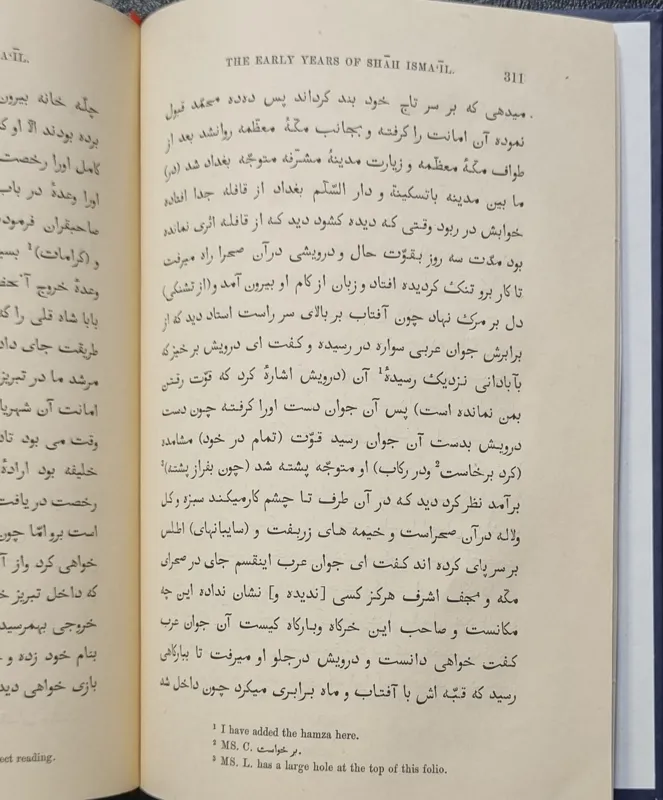 THE EARLY YEARS OF SHĀH ISMAʿĪL.
311
میدهی که بر سر تاج خود بند کرداند پس دده محمّد قبول
نموده آن امانت را کرفته و بجانب مکّهٔ معظّمه روانشد بعد از
طواف مکّهٔ معظّمه و زیارت مدینهٔ مشرّفه متوجّه بغداد شد (در)
ما بین مدینه باتسکینة و دار السّلم بغداد از قافله جدا افتاده
خوابش در ربود وقتی که دیده کشود دید که از قافله اثری نمانده
بود مدّت سه روز بقوّت حال و درویشی درآن صحرا راه میرفت
تا کار برو تنک کردیده افتاد و زبان از کام او بیرون آمد و(از تشنکی)
دل بر مرک نهاد چون آفتاب بر بالای سر راست استاد دید که از
برابرش جوان عربی سواره در رسیده و کفت ای درویش بر خیز که
بآبادانی نزدیک رسیدهٔ¹ آن (درویش اشارهٔ کرد که قوّت رفتن
بمن نمانده است) پس آن جوان دست اورا کرفته چون دست
درویش بدست آن جوان رسید قوّت (تمام در خود) مشاهده
(کرد برخاست² ودر رکاب) او متوجّه پشته شد (چون بفراز پشته)³
برآمد نظر کرد دید که در آن طرف تا چشم کارمیکند سبزه و کل
ولاله درآن صحراست و خیمه های زربفت و (سایبانهای) اطلس
بر سر پای کرده اند کفت ای جوان عرب اینقسم جای در صحرای
مکّه و نجف اشرف هرکز کسی [ندیده و] نشان نداده این چه
مکانست و صاحب این خرکاه وبارکاه کیست آن جوان عرب
کفت خواهی دانست و درویش درجلو او میرفت تا ببارکاهی
رسید که قبّه اش با آفتاب و ماه برابری میکرد چون داخل شد
¹ I have added the hamza here.
² MS. C. بر خواست.
³ MS. L. has a large hole at the top of this folio.
ʿĪL.
چلّه خانه بیرون
برده بودند الا او که
کامل اورا رخصت
اورا وعدهٔ در باب
صاحبقران فرموده
و (کرامات)² بسی
وعدهٔ خروج آنحض
بابا شاه قلی را که
طریقت جای داد
مرشد ما در تبریز
امانت آن شهریا
وقت می بود تاد
خلیفه بود ارادهٔ
رخصت در یافت
است برو امّا چون
خواهی کرد واز آ
که داخل تبریز خ
خروجی بهمرسید
بنام خود زده و
بازی خواهی دید
ect reading.